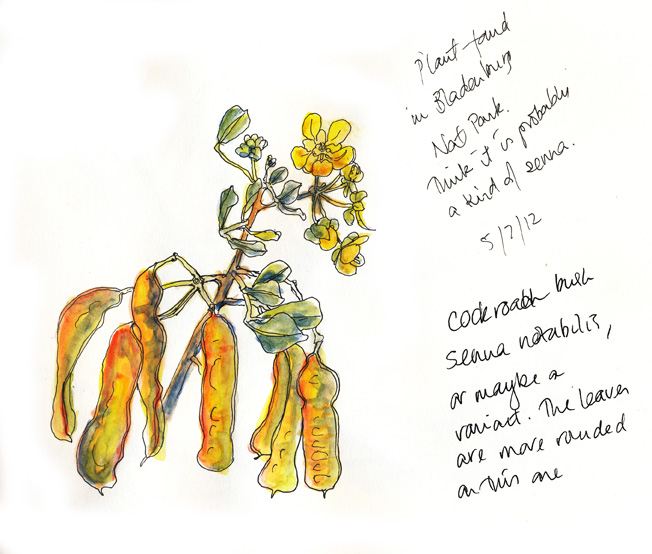 Plant found
in Bladenburg
Nat Park.
Think it is probably
a kind of senna.
5/7/12
Cockroach bush
senna notabilis,
or maybe a
variant. The leaves
are more rounded
on this one